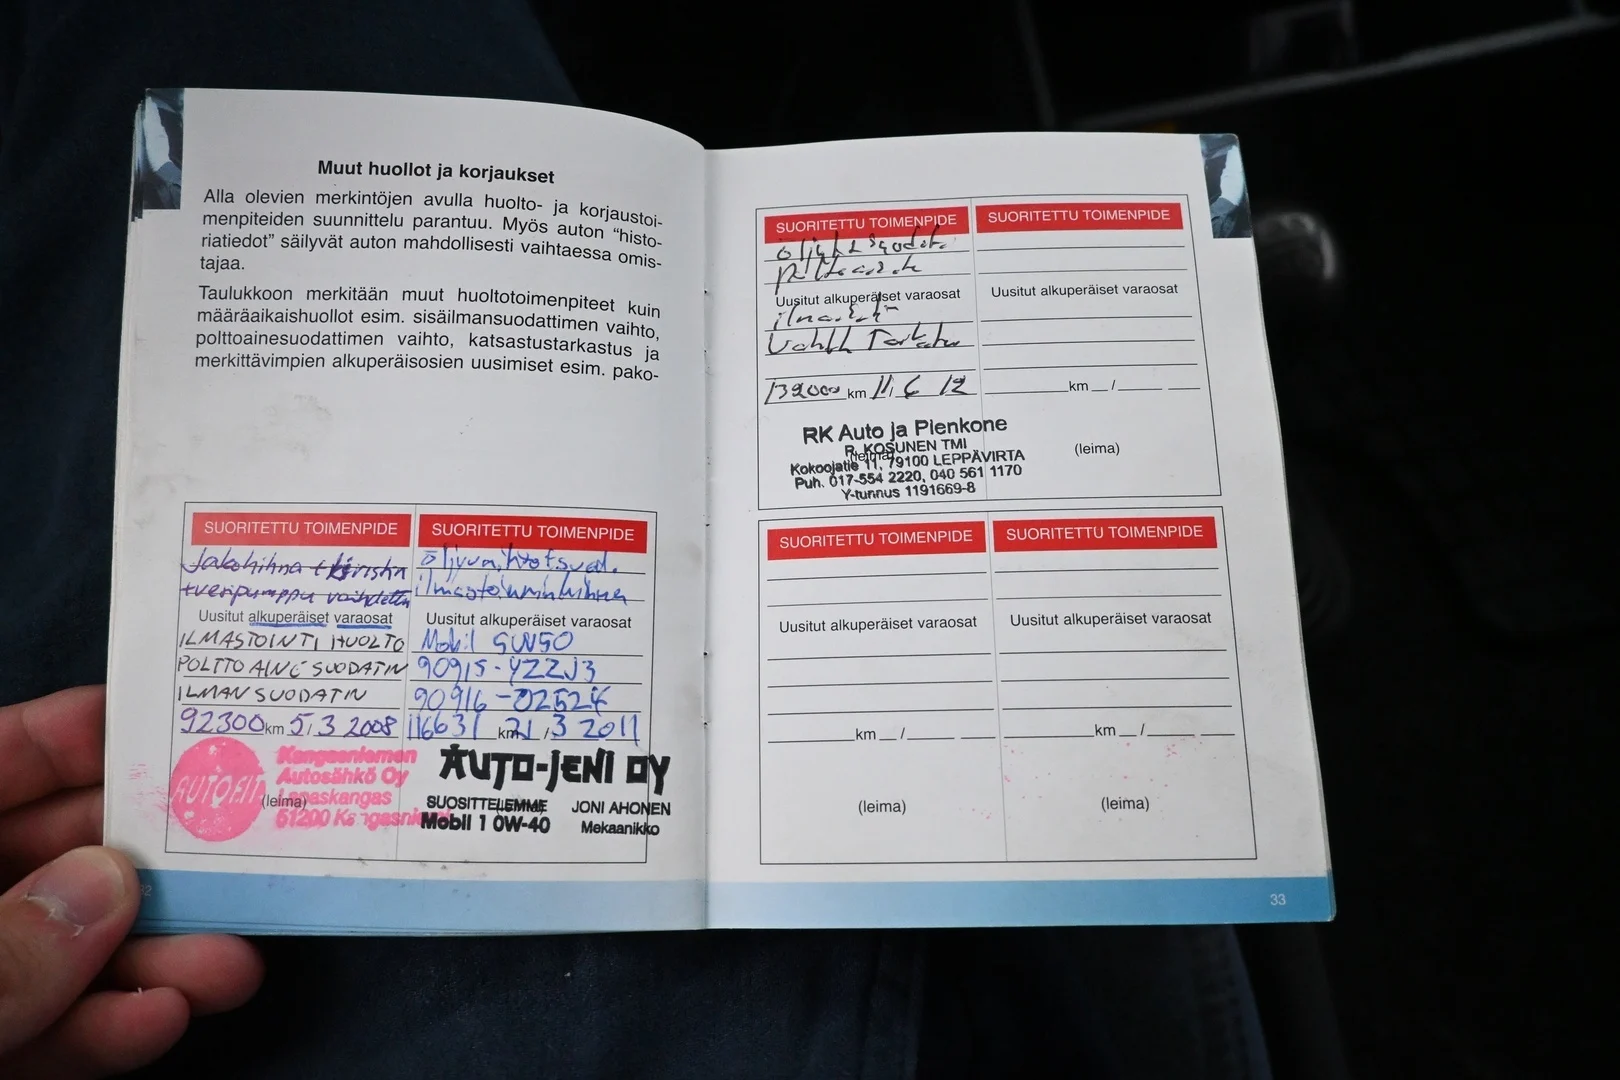 Muut huollot ja korjaukset
Alla olevien merkintöjen avulla huolto- ja korjaustoi-
menpiteiden suunnittelu parantuu. Myös auton "histo-
riatiedot" säilyvät auton mahdollisesti vaihtaessa omis-
tajaa.
Taulukkoon merkitään muut huoltotoimenpiteet kuin
määräaikaishuollot esim. sisäilmansuodattimen vaihto,
polttoainesuodattimen vaihto, katsastustarkastus ja
merkittävimpien alkuperäisosien uusimiset esim. pako-
SUORITETTU TOIMENPIDE
Jakohihna + kiristin
+vesipumppu vaihdettu
Uusitut alkuperäiset varaosat
ILMASTOINTI HUOLTO
POLTTOAINE SUODATIN
ILMANSUODATIN
92300 km 5/3 2008
AUTOFIT
Kangasniemen
Autosähkö Oy
Lapaskangas
51200 Kangasniemi
(leima)
SUORITETTU TOIMENPIDE
öljynvaihto+suod.
ilmastoinninhihna
Uusitut alkuperäiset varaosat
Mobil 5W50
90915-YZZJ3
90916-02524
116631 km 21/3 2011
AUTO-JENI OY
SUOSITTELEMME
Mobil 1 0W-40
JONI AHONEN
Mekaanikko
32
SUORITETTU TOIMENPIDE
Uusitut alkuperäiset varaosat
139000 km 11/6 12
RK Auto ja Pienkone
R. KOSUNEN TMI
(leima)
Kokoojatie 11, 79100 LEPPÄVIRTA
Puh. 017-554 2220, 040 561 1170
Y-tunnus 1191669-8
SUORITETTU TOIMENPIDE
Uusitut alkuperäiset varaosat
km /
(leima)
SUORITETTU TOIMENPIDE
Uusitut alkuperäiset varaosat
km /
(leima)
SUORITETTU TOIMENPIDE
Uusitut alkuperäiset varaosat
km /
(leima)
33